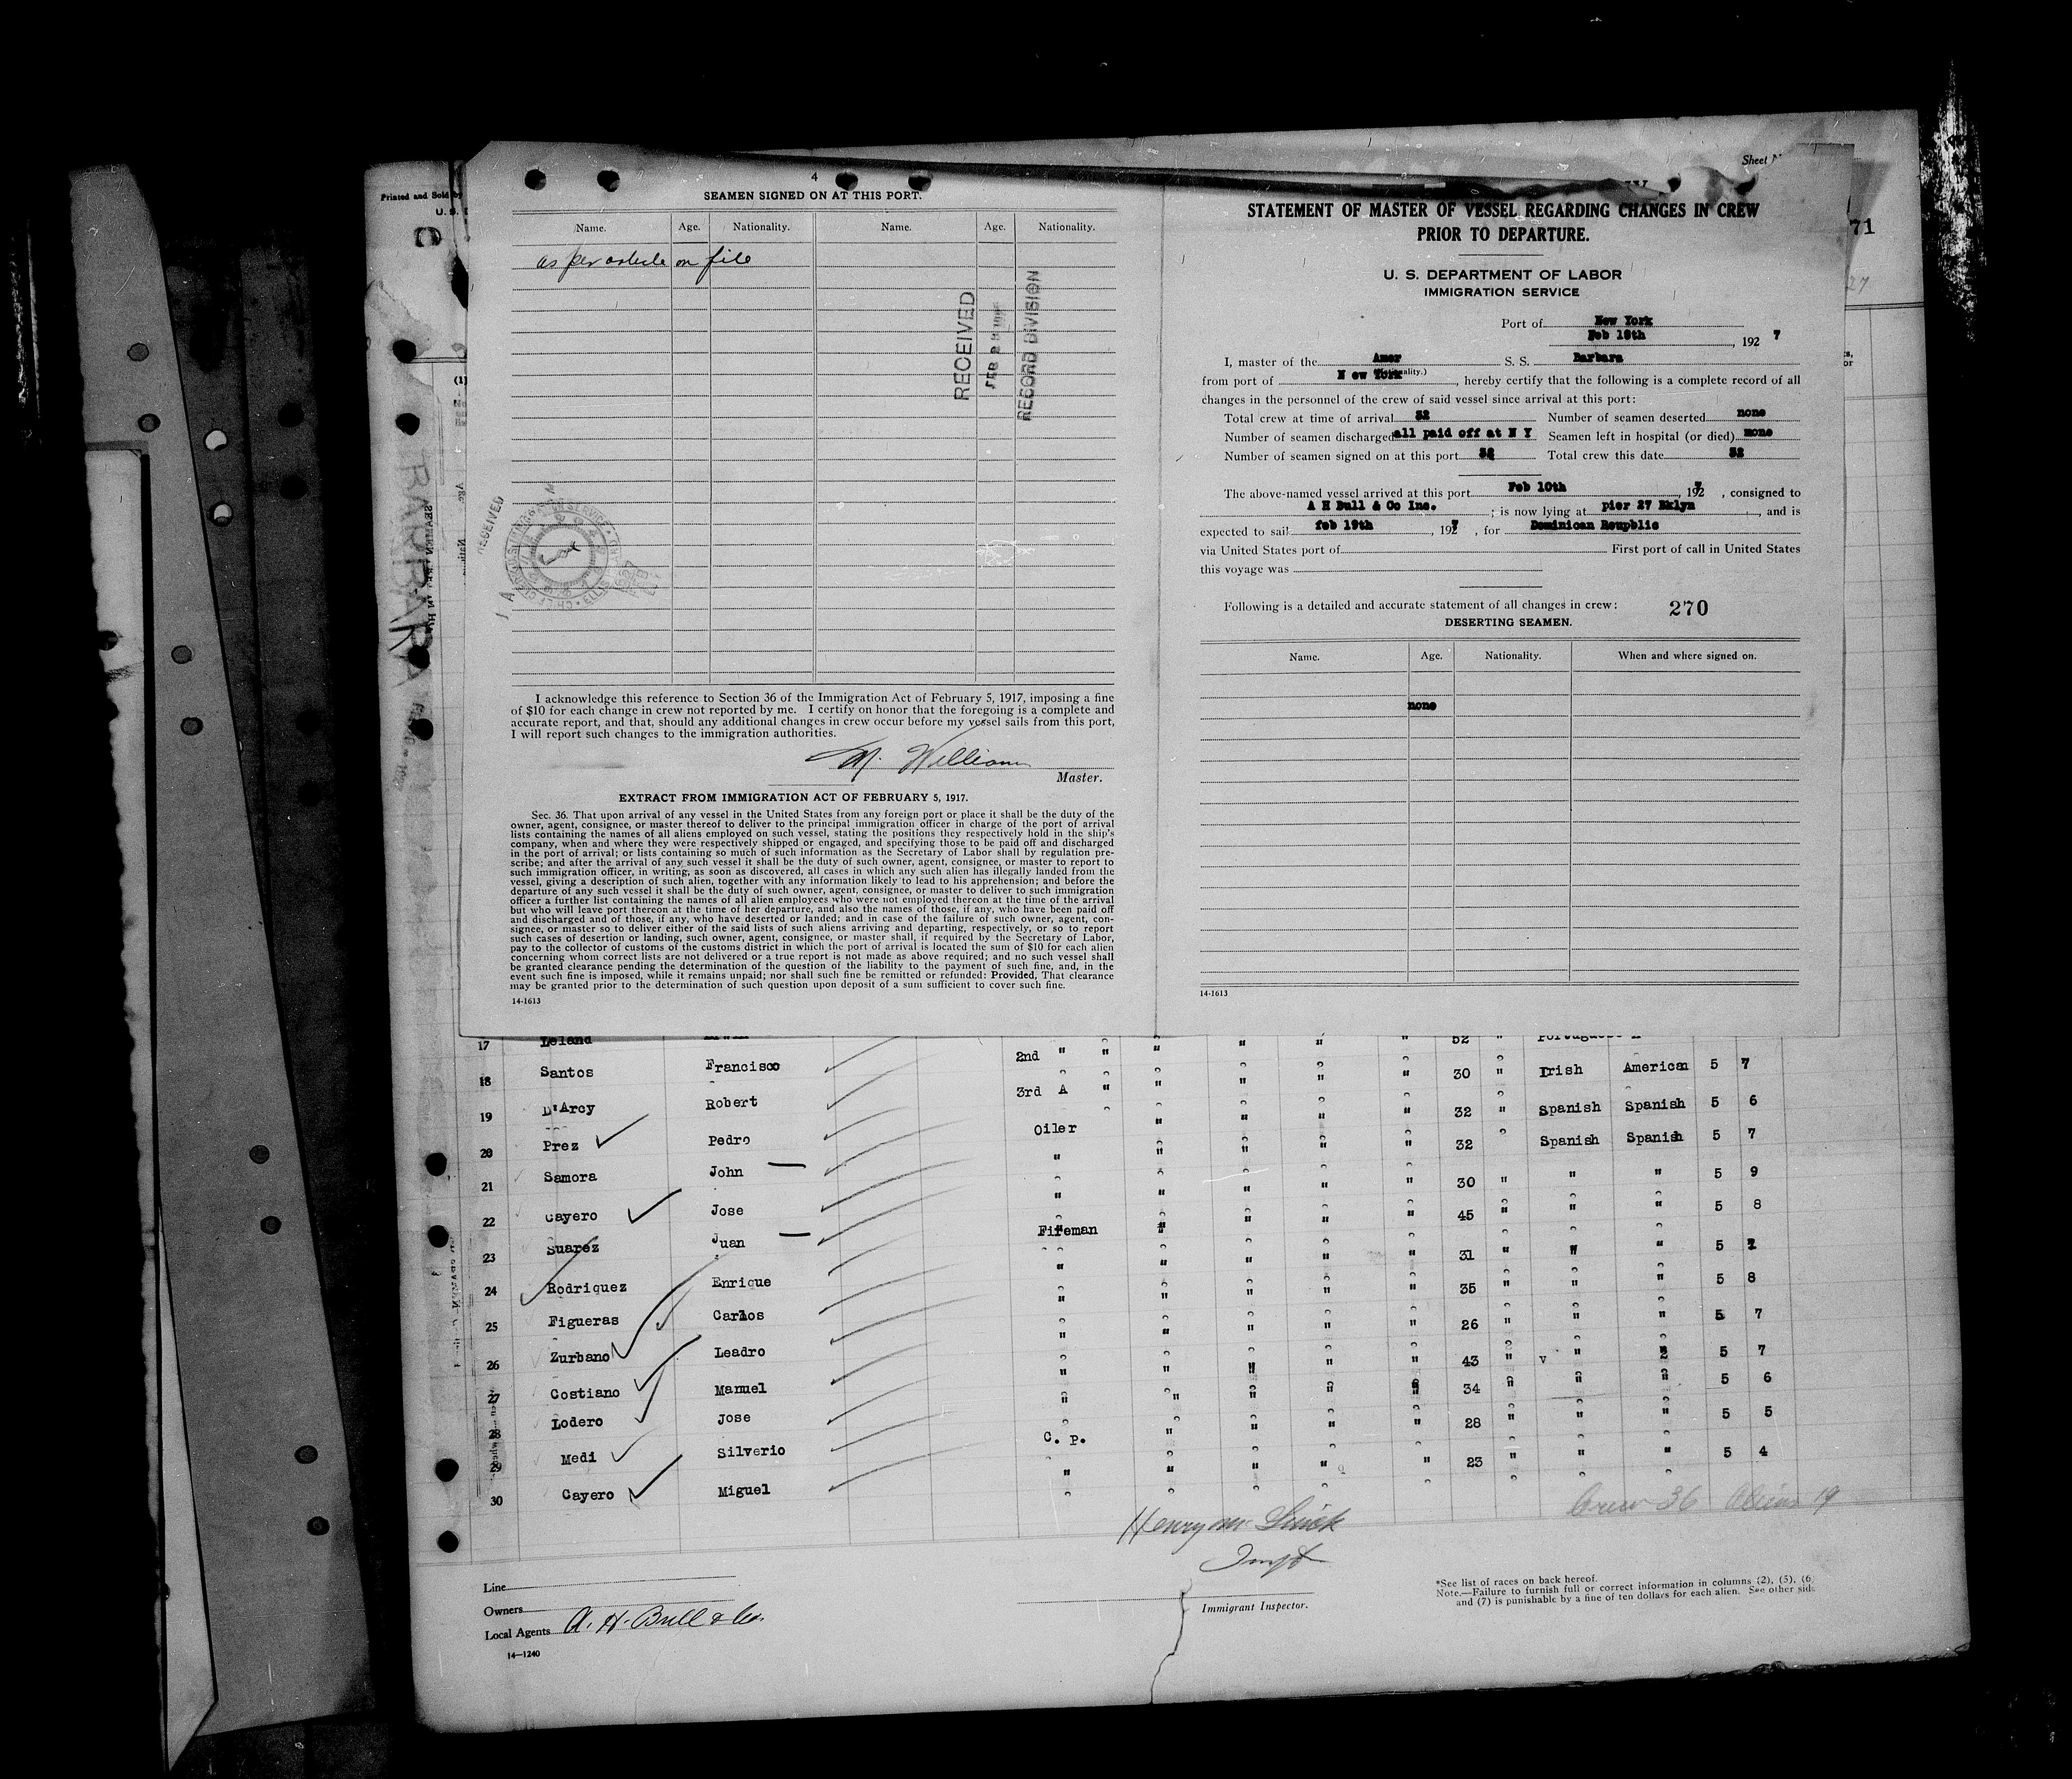 Printed and Sold by
Sheet
71
27
4
SEAMEN SIGNED ON AT THIS PORT.
Name. Age. Nationality. Name. Age. Nationality.
as per article on file
RECEIVED
RECORD DIVISION
RECEIVED
BARBARA
I acknowledge this reference to Section 36 of the Immigration Act of February 5, 1917, imposing a fine
of $10 for each change in crew not reported by me. I certify on honor that the foregoing is a complete and
accurate report, and that, should any additional changes in crew occur before my vessel sails from this port,
I will report such changes to the immigration authorities.
M. William
Master.
EXTRACT FROM IMMIGRATION ACT OF FEBRUARY 5, 1917.
Sec. 36. That upon arrival of any vessel in the United States from any foreign port or place it shall be the duty of the
owner, agent, consignee, or master thereof to deliver to the principal immigration officer in charge of the port of arrival
lists containing the names of all aliens employed on such vessel, stating the positions they respectively hold in the ship's
company, when and where they were respectively shipped or engaged, and specifying those to be paid off and discharged
in the port of arrival; or lists containing so much of such information as the Secretary of Labor shall by regulation pre-
scribe; and after the arrival of any such vessel it shall be the duty of such owner, agent, consignee, or master to report to
such immigration officer, in writing, as soon as discovered, all cases in which any such alien has illegally landed from the
vessel, giving a description of such alien, together with any information likely to lead to his apprehension; and before the
departure of any such vessel it shall be the duty of such owner, agent, consignee, or master to deliver to such immigration
officer a further list containing the names of all alien employees who were not employed thereon at the time of the arrival
but who will leave port thereon at the time of her departure, and also the names of those, if any, who have been paid off
and discharged and of those, if any, who have deserted or landed; and in case of the failure of such owner, agent, con-
signee, or master so to deliver either of the said lists of such aliens arriving and departing, respectively, or so to report
such cases of desertion or landing, such owner, agent, consignee, or master shall, if required by the Secretary of Labor,
pay to the collector of customs of the customs district in which the port of arrival is located the sum of $10 for each alien
concerning whom correct lists are not delivered or a true report is not made as above required; and no such vessel shall
be granted clearance pending the determination of the question of the liability to the payment of such fine, and, in the
event such fine is imposed, while it remains unpaid; nor shall such fine be remitted or refunded: Provided, That clearance
may be granted prior to the determination of such question upon deposit of a sum sufficient to cover such fine.
14-1613
STATEMENT OF MASTER OF VESSEL REGARDING CHANGES IN CREW
PRIOR TO DEPARTURE.
U. S. DEPARTMENT OF LABOR
IMMIGRATION SERVICE
Port of New York
Feb 18th, 192 7
I, master of the Amer S. S. Barbara
from port of New York, hereby certify that the following is a complete record of all
changes in the personnel of the crew of said vessel since arrival at this port:
Total crew at time of arrival 32 Number of seamen deserted none
Number of seamen discharged all paid off at N Y Seamen left in hospital (or died) none
Number of seamen signed on at this port 32 Total crew this date 32
The above-named vessel arrived at this port Feb 10th, 1927, consigned to
A H Bull & Co Inc.; is now lying at pier 27 Bklyn, and is
expected to sail feb 19th, 1927, for Dominican Reupblic
via United States port of First port of call in United States
this voyage was
Following is a detailed and accurate statement of all changes in crew: 270
DESERTING SEAMEN.
Name. Age. Nationality. When and where signed on.
none
14-1613
17 Leland 52 "
18 Santos Francisco 2nd " " 30 " Irish American 5 7
19 D'Arcy Robert 3rd A " 32 " Spanish Spanish 5 6
20 Prez Pedro Oiler 32 " Spanish Spanish 5 7
21 Samora John " 30 " " " 5 9
22 Cayero Jose " 45 " " " 5 8
23 Suarez Juan Fireman 31 " " " 5
24 Rodriquez Enrique " 35 " " " 5 8
25 Figueras Carlos " 26 " " " 5 7
26 Zurbano Leadro " 43 " " 5 7
27 Costiano Manuel " 34 " " " 5 6
28 Lodero Jose " 28 " " " 5 5
29 Medi Silverio C. P. 23 " " " 5 4
30 Cayero Miguel "
Crew 36 Aliens 19
Henry
Inspt
Immigrant Inspector.
Line
Owners
Local Agents A. H. Bull & Co.
14-1240
*See list of races on back hereof.
Note.—Failure to furnish full or correct information in columns (2), (5), (6)
and (7) is punishable by a fine of ten dollars for each alien. See other side